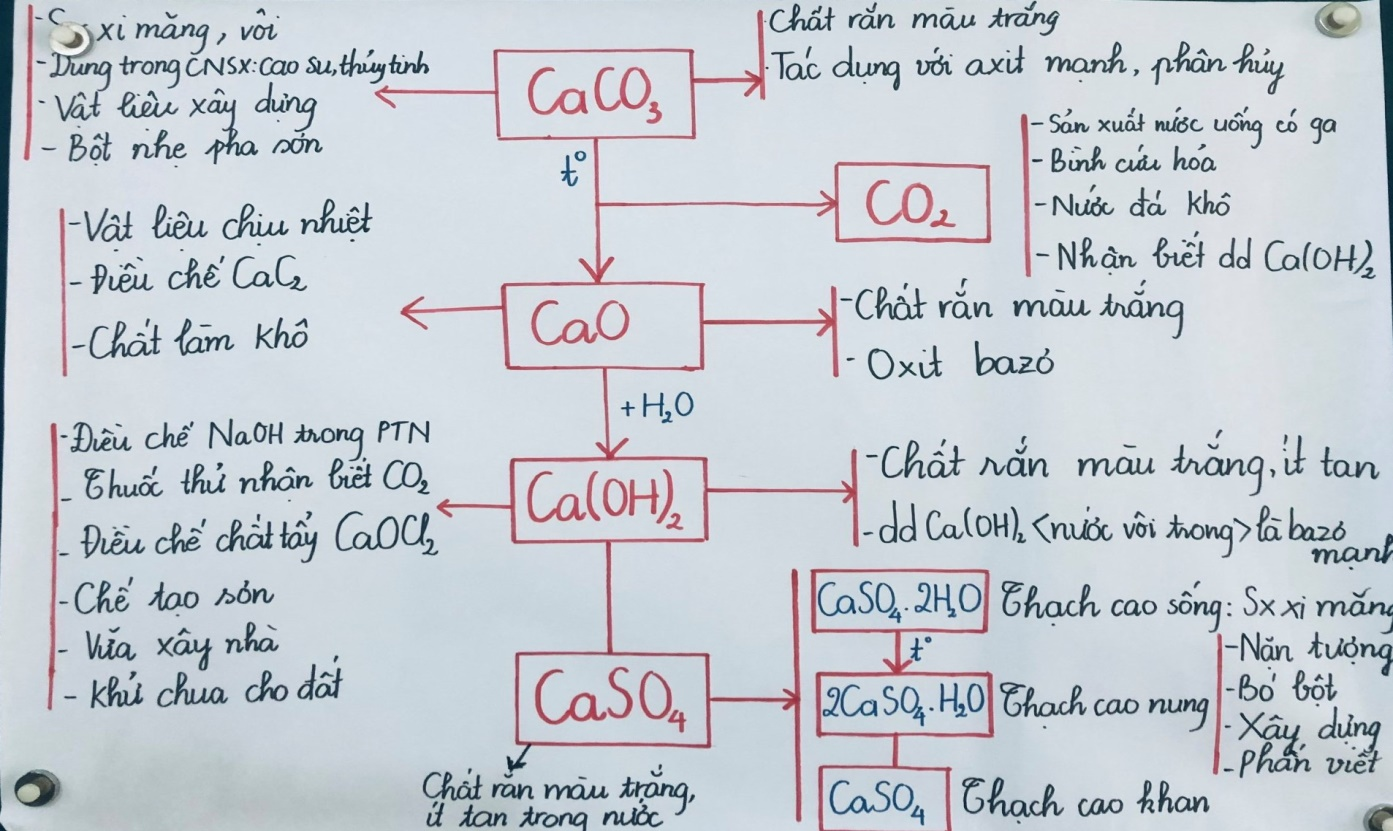 xi măng, vôi
- Dùng trong CNSX: cao su, thủy tinh
- Vật liệu xây dựng
- Bột nhẹ pha sơn
CaCO₃
Chất rắn màu trắng
Tác dụng với axit mạnh, phân hủy
t°
CO₂
- Sản xuất nước uống có ga
- Bình cứu hỏa
- Nước đá khô
- Nhận biết dd Ca(OH)₂
- Vật liệu chịu nhiệt
- Điều chế CaC₂
- Chất làm khô
CaO
- Chất rắn màu trắng
- Oxit bazơ
+ H₂O
- Điều chế NaOH trong PTN
- Thuốc thử nhận biết CO₂
- Điều chế chất tẩy CaOCl₂
- Chế tạo sơn
- Vữa xây nhà
- Khử chua cho đất
Ca(OH)₂
- Chất rắn màu trắng, ít tan
- dd Ca(OH)₂ <nước vôi trong> là bazơ
mạnh
CaSO₄
Chất rắn màu trắng,
ít tan trong nước
CaSO₄.2H₂O Thạch cao sống: Sx xi măng
t°
2CaSO₄.H₂O Thạch cao nung
- Nặn tượng
- Bó bột
- Xây dựng
- Phấn viết
CaSO₄ Thạch cao khan